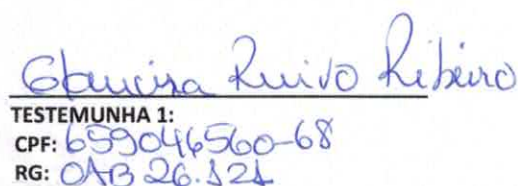 Glaucira Ruivo Ribeiro
TESTEMUNHA 1:
CPF: 659046560-68
RG: OAB 26.121